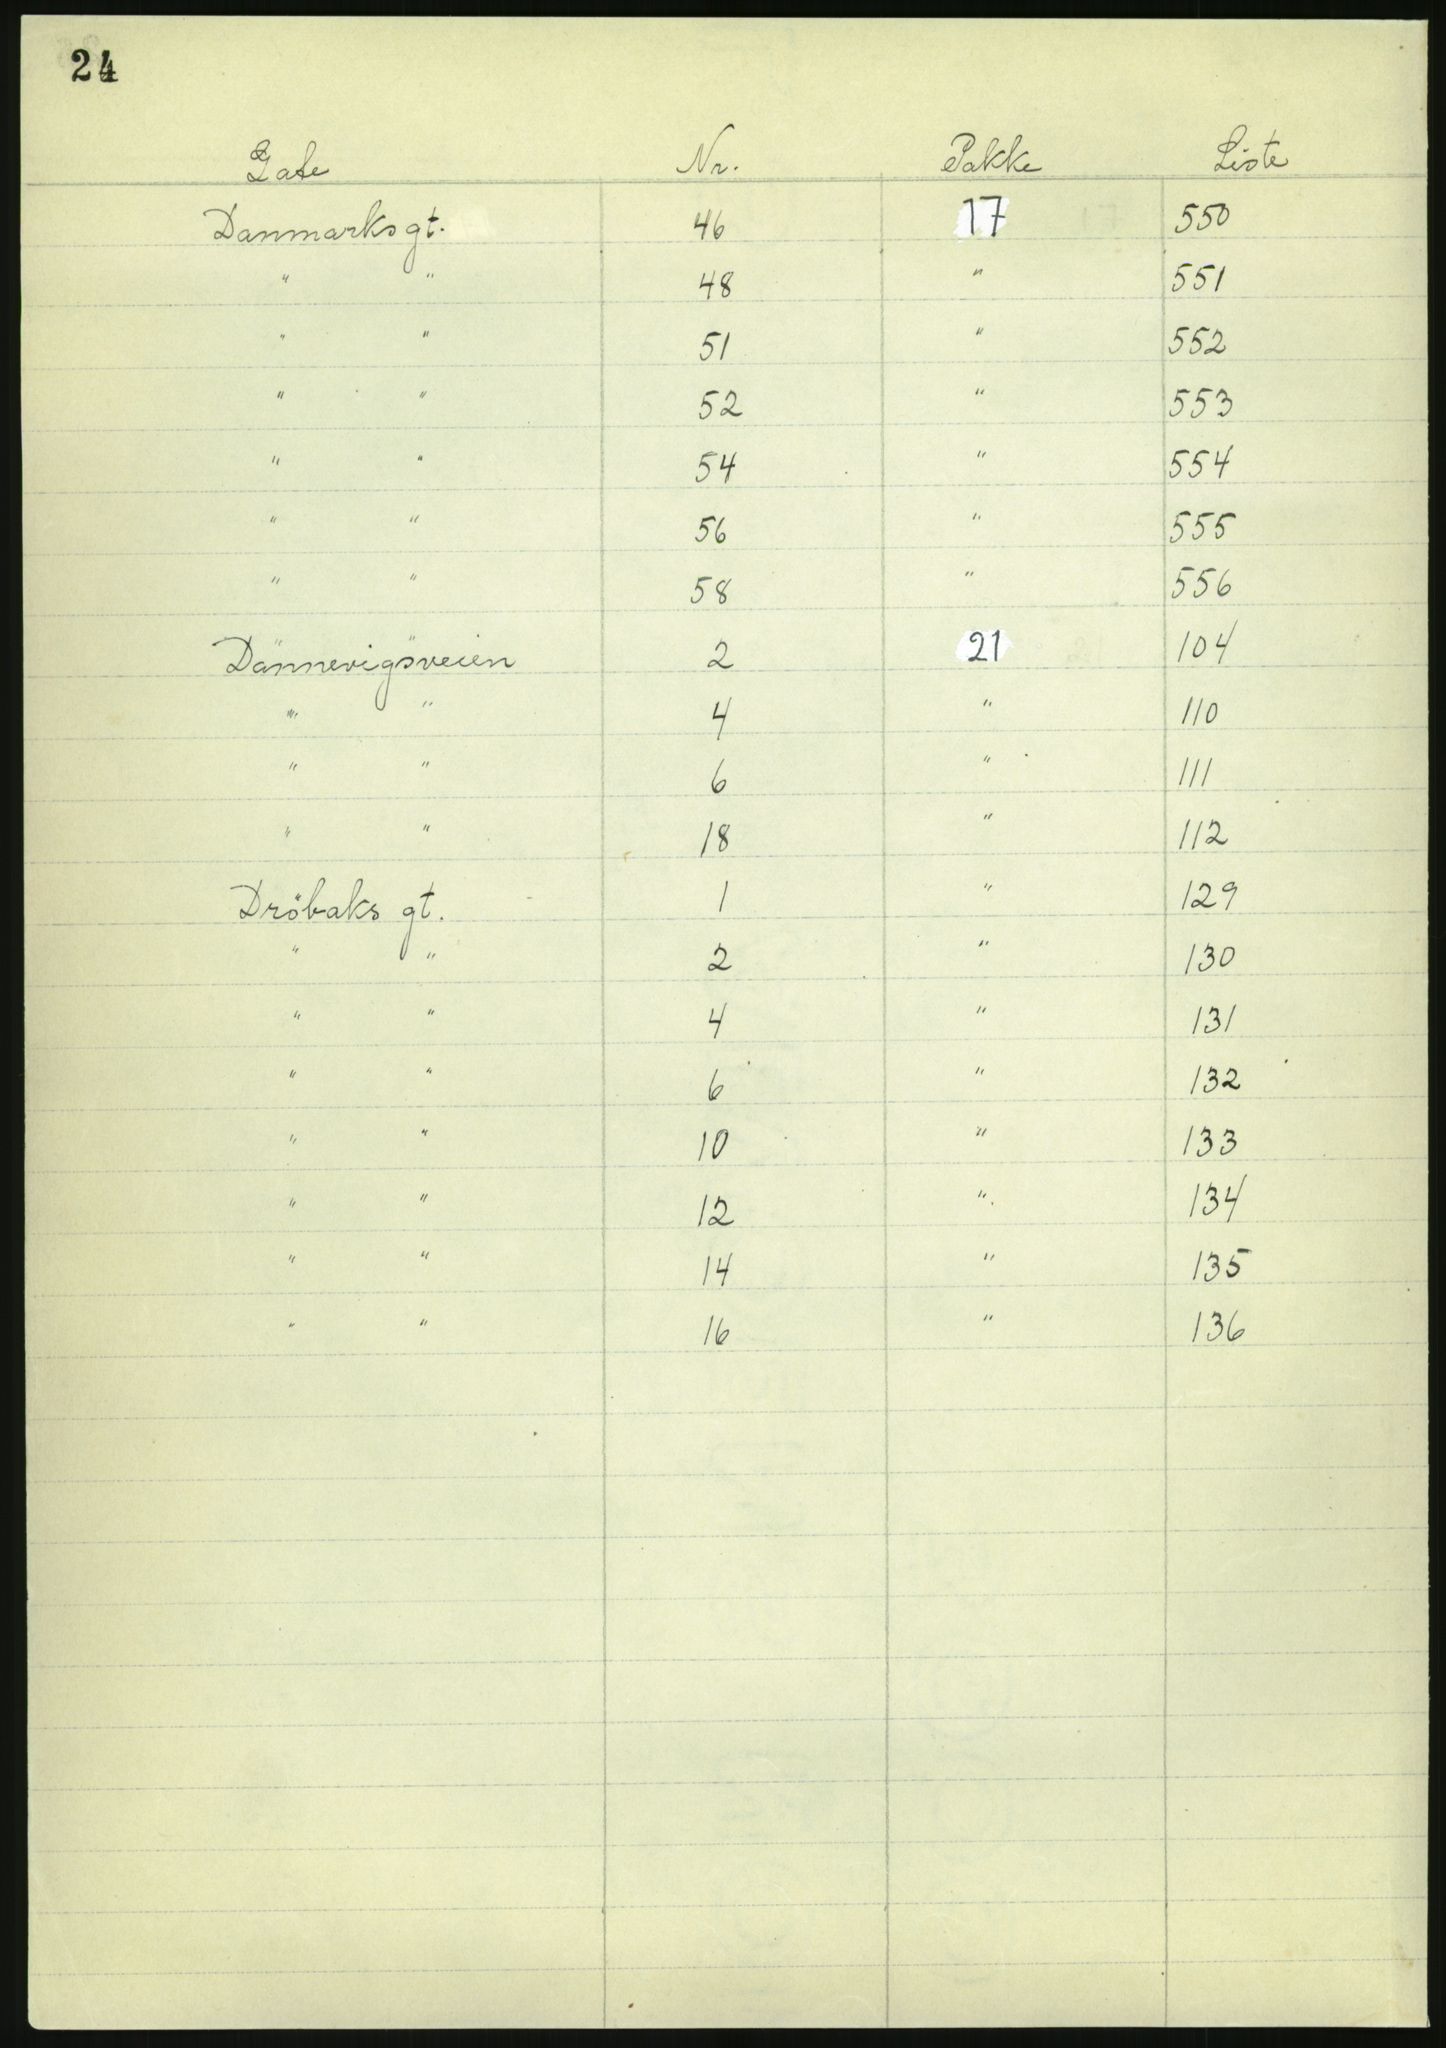 24
Gate Nr. Pakke Liste
Danmarks gt. 46 17 550
" " 48 " 551
" " 51 " 552
" " 52 " 553
" " 54 " 554
" " 56 " 555
" " 58 " 556
Dannevigsveien 2 21 104
" " 4 " 110
" " 6 " 111
" " 18 " 112
Dröbaks gt. 1 " 129
" " 2 " 130
" " 4 " 131
" " 6 " 132
" " 10 " 133
" " 12 " 134
" " 14 " 135
" " 16 " 136